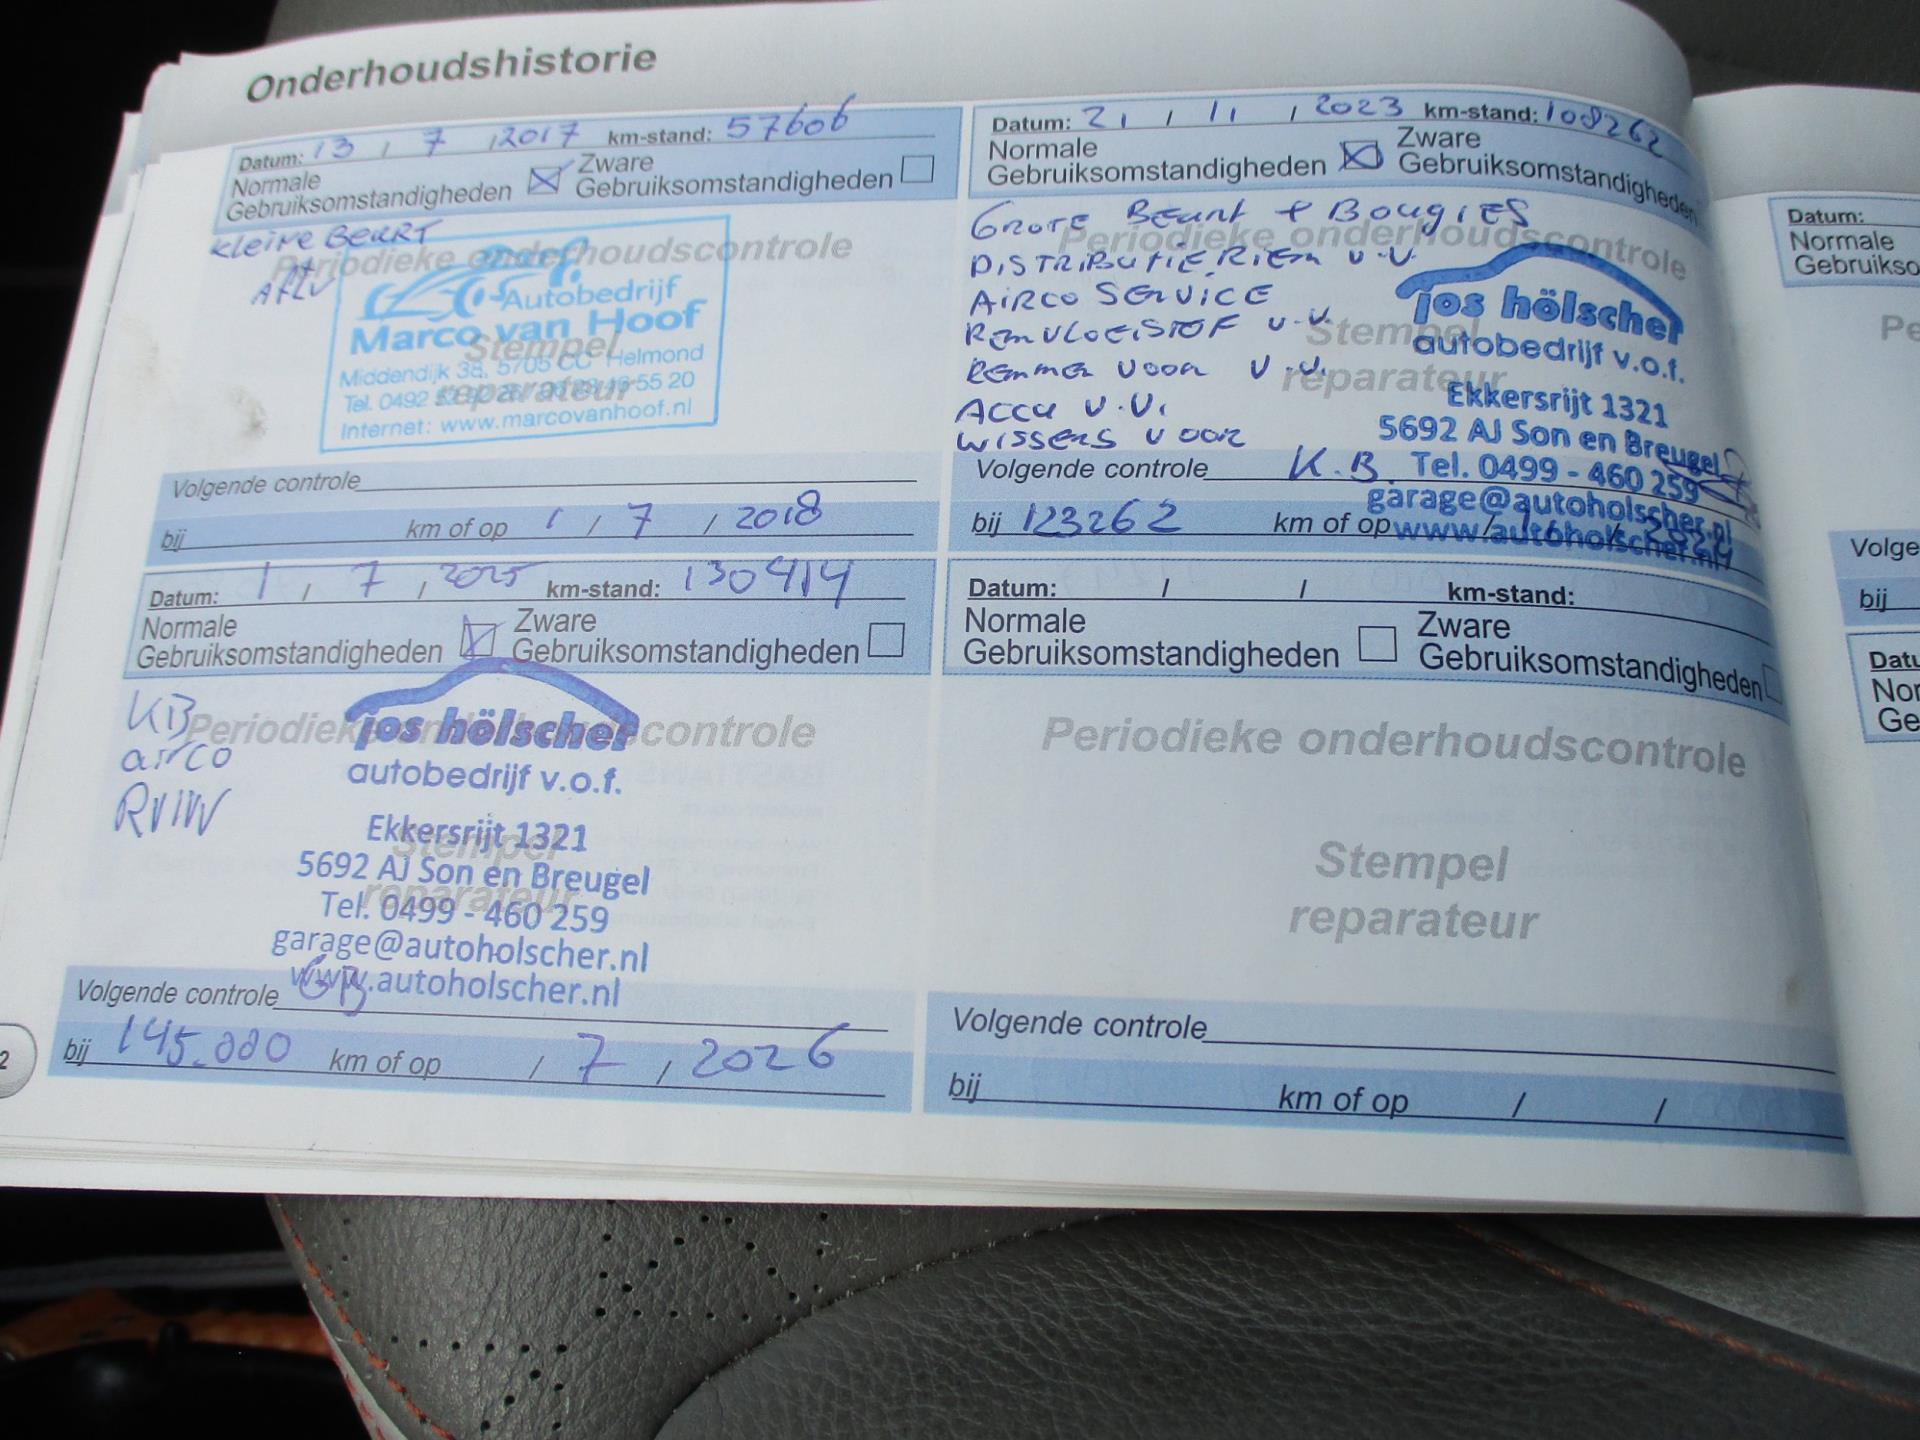 Onderhoudshistorie
Datum: 13 / 7 / 2017 km-stand: 57606
Normale Gebruiksomstandigheden
Zware Gebruiksomstandigheden
Kleine Beurt
Periodieke onderhoudscontrole
Autobedrijf
Marco van Hoof
Middendijk 3a, 5705 CC Helmond
Tel. 0492
Internet: www.marcovanhoof.nl
Stempel
reparateur
Volgende controle
bij km of op 1 / 7 / 2018
Datum: 21 / 11 / 2023 km-stand: 108262
Normale Gebruiksomstandigheden
Zware Gebruiksomstandigheden
Grote Beurt + Bougies
Periodieke onderhoudscontrole
Distributie Riem v.v.
Airco Service
Remvloeistof v.v.
Remmen voor v.v.
Accu v.v.
Wissers voor
Stempel
reparateur
jos hölscher
autobedrijf v.o.f.
Ekkersrijt 1321
5692 AJ Son en Breugel
Tel. 0499 - 460 259
garage@autoholscher.nl
www.autoholscher.nl
Volgende controle K.B.
bij 123262 km of op
Datum: 1 / 7 / 2025 km-stand: 130414
Normale Gebruiksomstandigheden
Zware Gebruiksomstandigheden
KB
airco
Periodieke onderhoudscontrole
jos hölscher
autobedrijf v.o.f.
Stempel
reparateur
Ekkersrijt 1321
5692 AJ Son en Breugel
Tel. 0499 - 460 259
garage@autoholscher.nl
www.autoholscher.nl
Volgende controle GB
bij 145.000 km of op / 7 / 2026
Datum: / / km-stand:
Normale Gebruiksomstandigheden
Zware Gebruiksomstandigheden
Periodieke onderhoudscontrole
Stempel
reparateur
Volgende controle
bij km of op / /
2
Datum:
Normale
Gebruikso
Pe
Volge
bij
Datu
Nor
Ge